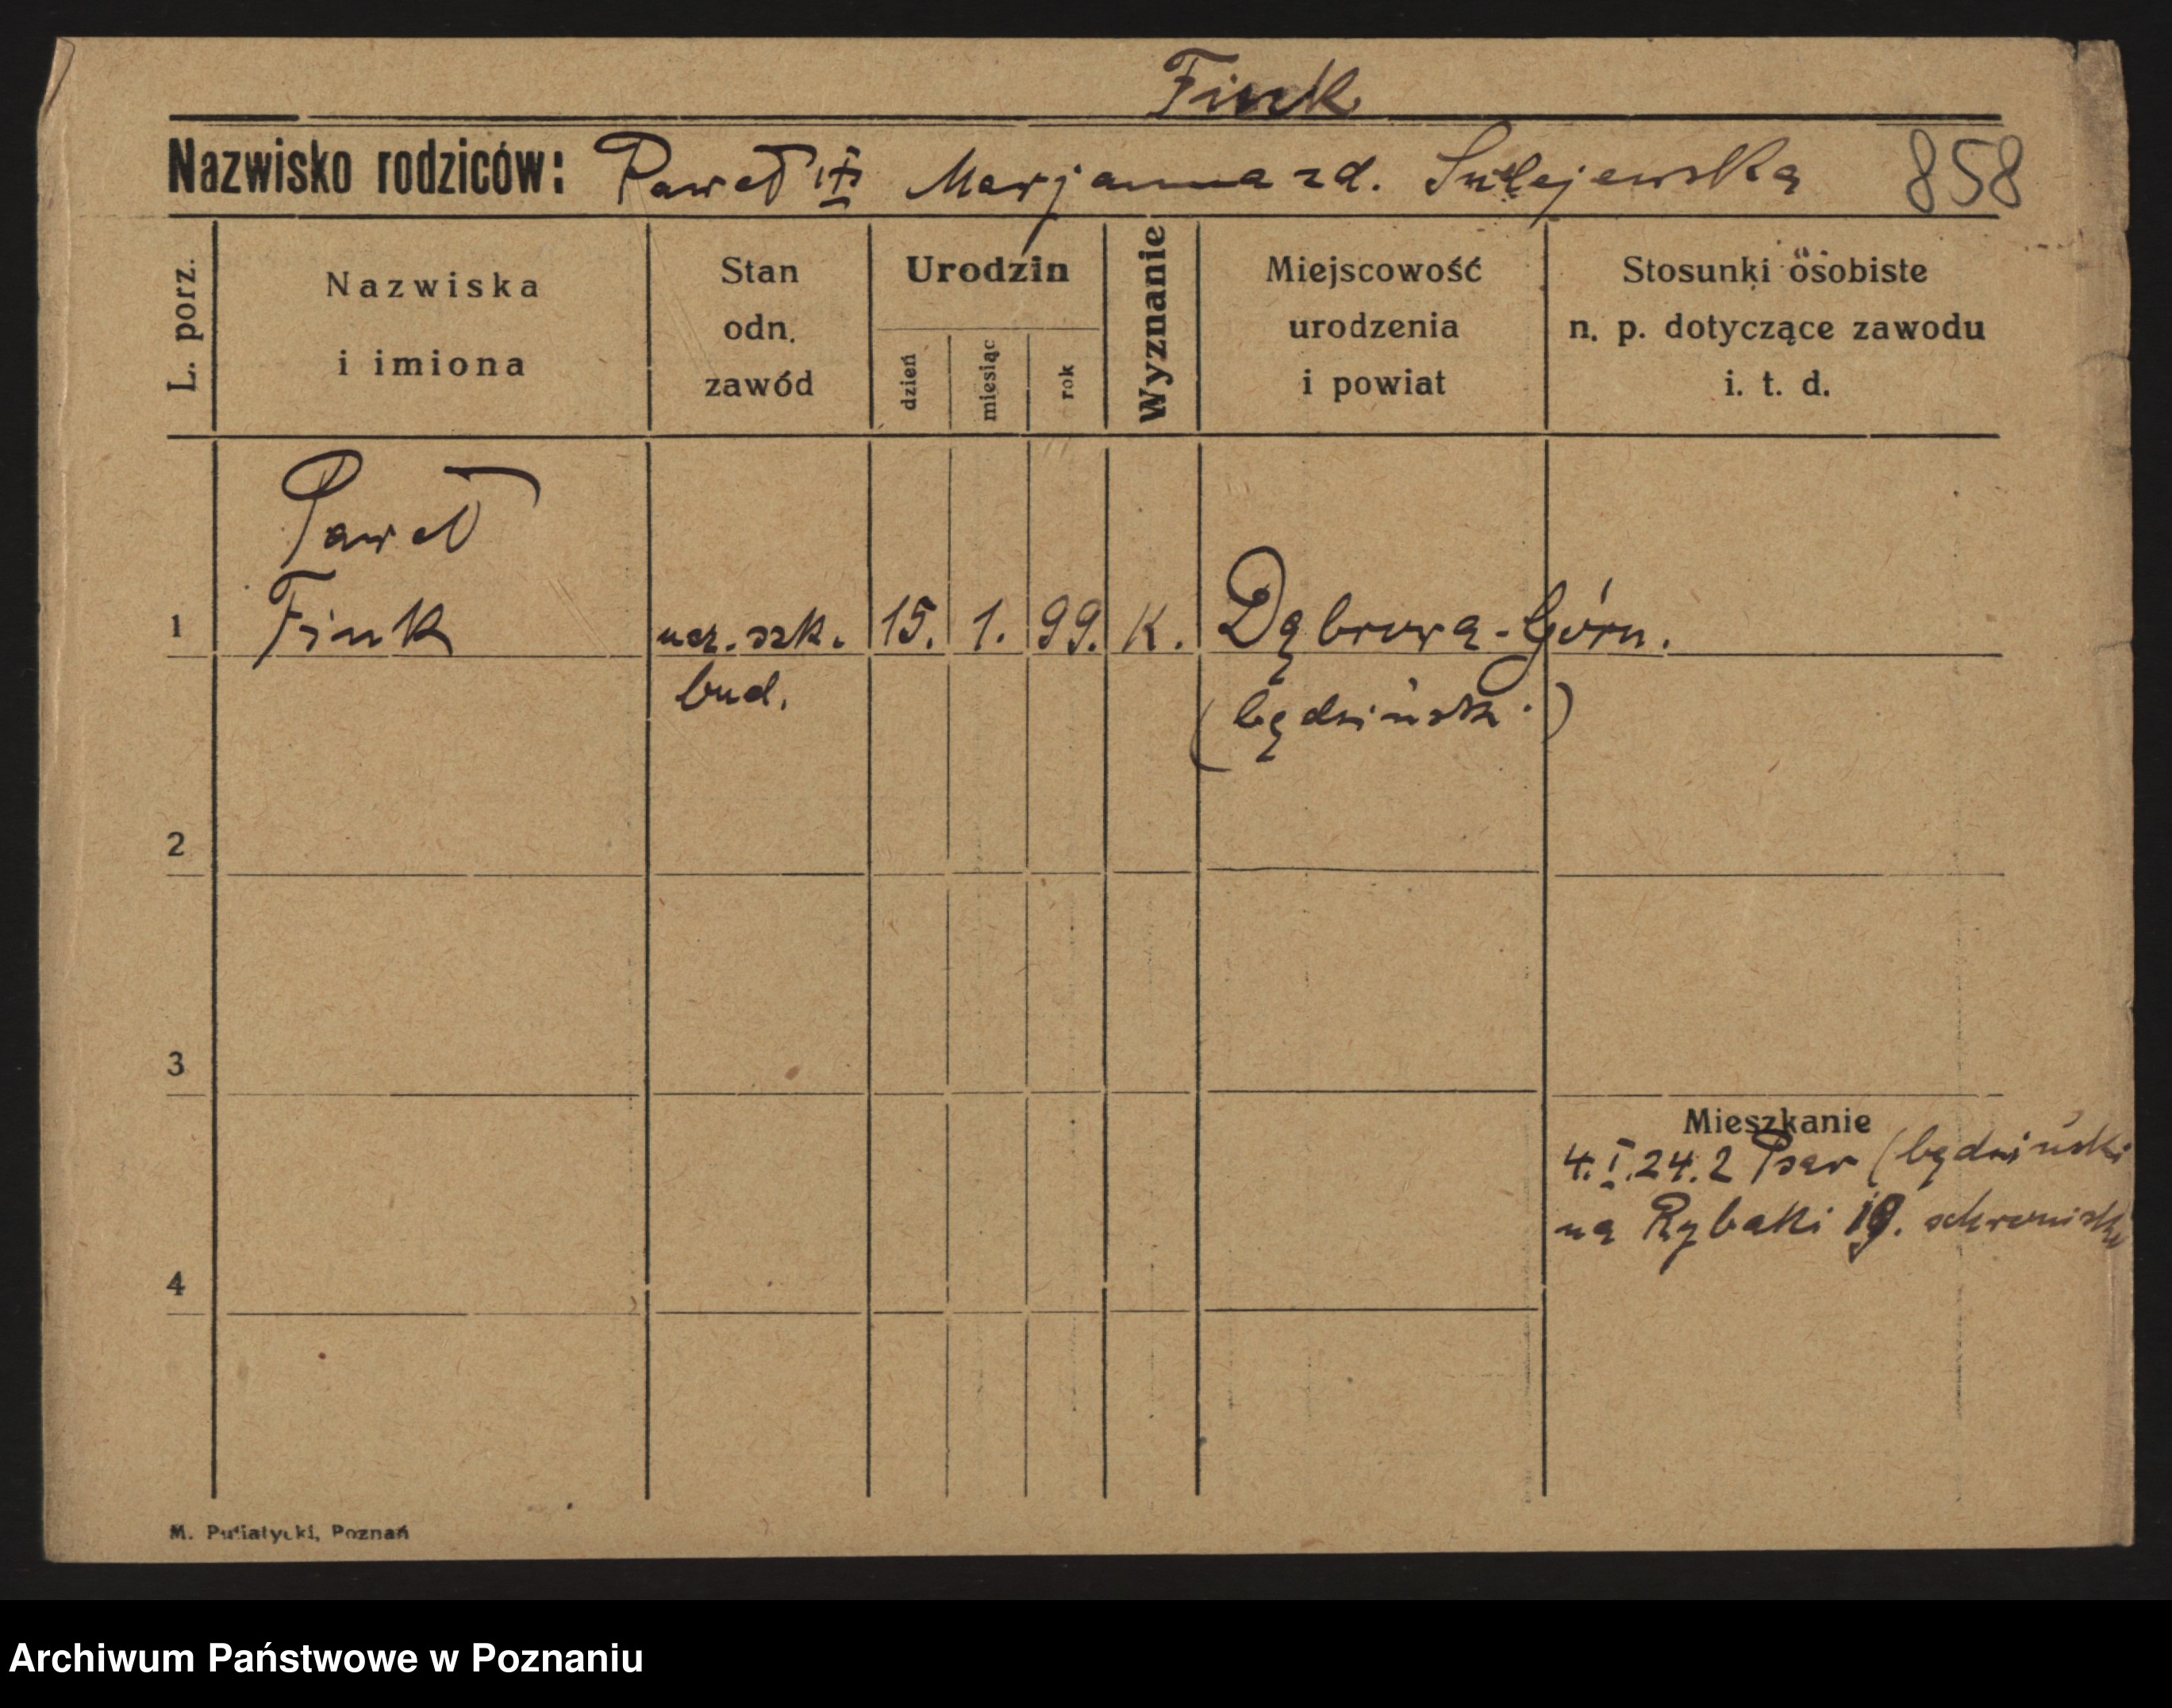 Fink
Nazwisko rodziców: Paweł i Marjanna zd. Sulejewska 858
L. porz.
Nazwiska
i imiona
Stan
odn.
zawód
Urodzin
dzień
miesiąc
rok
Wyznanie
Miejscowość
urodzenia
i powiat
Stosunki osobiste
n. p. dotyczące zawodu
i. t. d.
Paweł
1 Fink ucz. szk. 15. 1. 99. K. Dąbrowa-Górn.
bud. (będziński)
2
3
Mieszkanie
4.I.24. z Psar (będziński
na Rybaki 19. schronisko
4
M. Putiatycki, Poznań
Archiwum Państwowe w Poznaniu